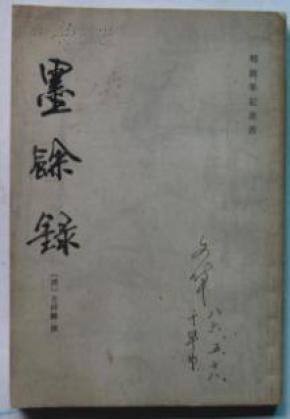 墨餘録
〔清〕毛祥麟 撰
明清筆記叢書
八六.五.十八